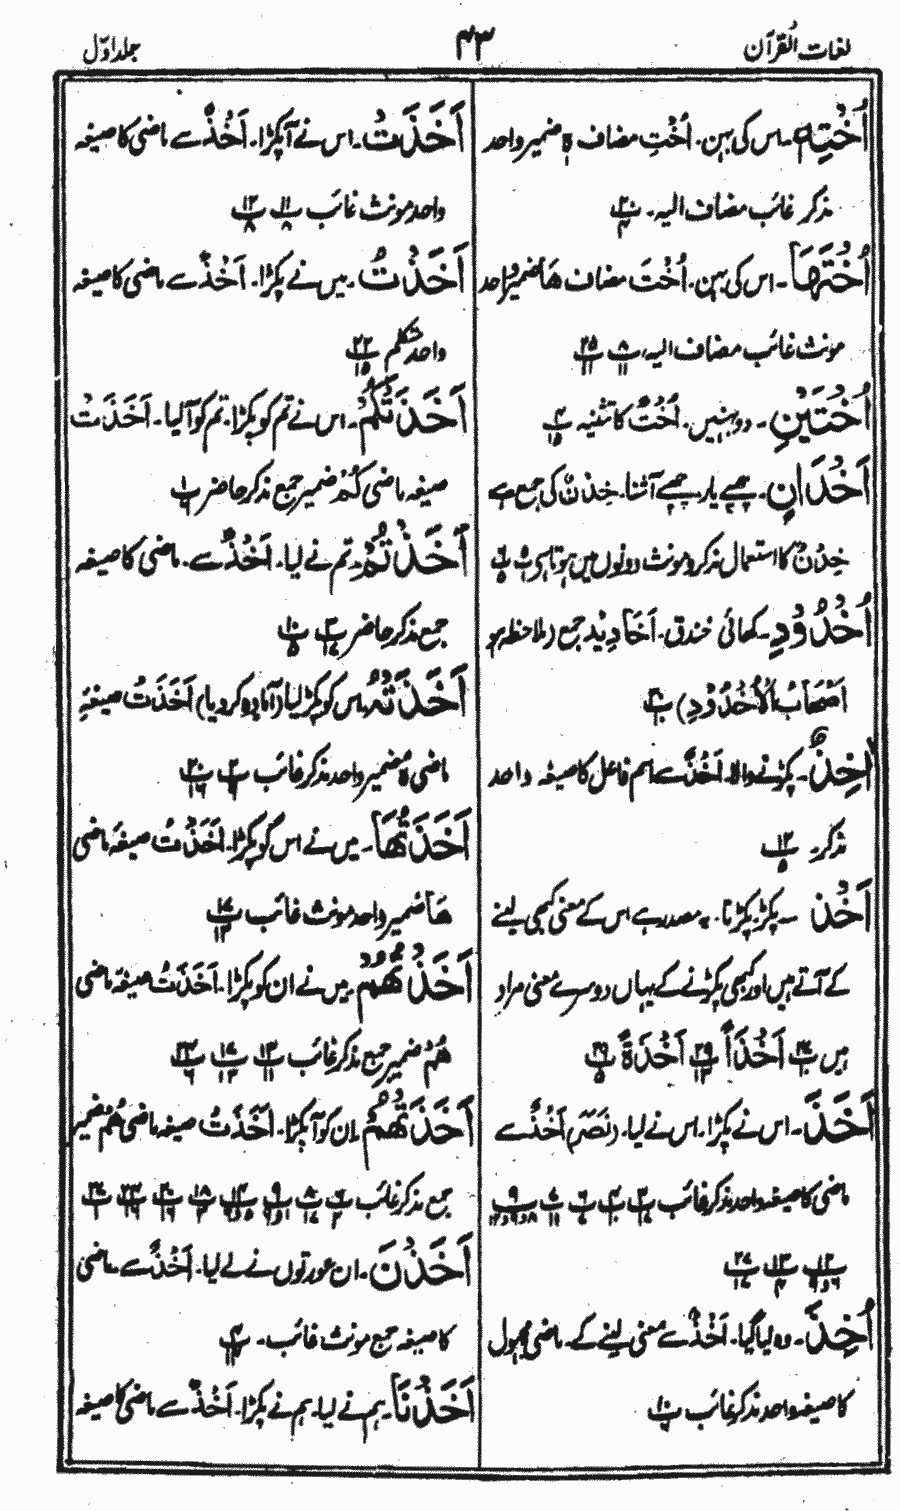 لغات القرآن
۴۳
جلد اوّل
اُخْتِهٖ۔ اس کی بہن۔ اُخْتِ مضاف ہٖ ضمیر واحد
مذکر غائب مضاف الیہ۔
اُخْتَهَا۔ اس کی بہن۔ اُخْتَ مضاف هَا ضمیر واحد
مونث غائب مضاف الیہ،
اُخْتَيْنِ۔ دو بہنیں۔ اُخْتٌ کا تثنیہ
اَخْدَانٍ۔ چھپے یار، چھپے آشنا۔ خِدْنٌ کی جمع ہے
خِدْنٌ کا استعمال مذکر و مونث دونوں میں ہوتا ہے
اُخْدُوْدِ۔ کھائی خندق۔ اَخَادِيْد جمع (ملاحظہ ہو
اَصْحَابُ الْاُخْدُوْدِ)
اٰخِذٌ۔ پکڑنے والا۔ اَخْذٌ سے اسم فاعل کا صیغہ واحد
مذکر۔
اَخْذٌ۔ پکڑ، پکڑنا۔ یہ مصدر ہے اس کے معنی کبھی لینے
کے آتے ہیں اور کبھی پکڑنے کے یہاں دوسرے معنی مراد
ہیں اَخْذًا اَخْذَةً
اَخَذَ۔ اس نے پکڑا۔ اس نے لیا۔ (نَصَرَ) اَخْذٌ سے
ماضی کا صیغہ واحد مذکر غائب
اُخِذَ۔ وہ لیا گیا۔ اَخْذٌ سے معنی لینے کے۔ ماضی مجہول
کا صیغہ واحد مذکر غائب
اَخَذَتْ۔ اس نے آ پکڑا۔ اَخْذٌ سے ماضی کا صیغہ
واحد مونث غائب
اَخَذْتُ۔ میں نے پکڑا۔ اَخْذٌ سے ماضی کا صیغہ
واحد متکلم
اَخَذَتْكُمْ۔ اس نے تم کو پکڑا۔ تم کو آ لیا۔ اَخَذَتْ
صیغہ ماضی كُمْ ضمیر جمع مذکر حاضر
اَخَذْتُمْ۔ تم نے لیا۔ اَخْذٌ سے۔ ماضی کا صیغہ
جمع مذکر حاضر
اَخَذَتْهُ۔ اس کو پکڑ لیا (آمادہ کر دیا) اَخَذَتْ صیغہ
ماضی ہٗ ضمیر واحد مذکر غائب
اَخَذْتُهَا۔ میں نے اس کو پکڑا۔ اَخَذْتُ صیغہ ماضی
هَا ضمیر واحد مونث غائب
اَخَذْتُهُمْ۔ میں نے ان کو پکڑا۔ اَخَذْتُ صیغہ ماضی
هُمْ ضمیر جمع مذکر غائب
اَخَذَتْهُمْ۔ ان کو آ پکڑا۔ اَخَذَتْ صیغہ ماضی هُمْ ضمیر
جمع مذکر غائب
اَخَذْنَ۔ ان عورتوں نے لے لیا۔ اَخْذٌ سے ماضی
کا صیغہ جمع مونث غائب۔
اَخَذْنَا۔ ہم نے لیا۔ ہم نے پکڑا۔ اَخْذٌ سے ماضی کا صیغہ